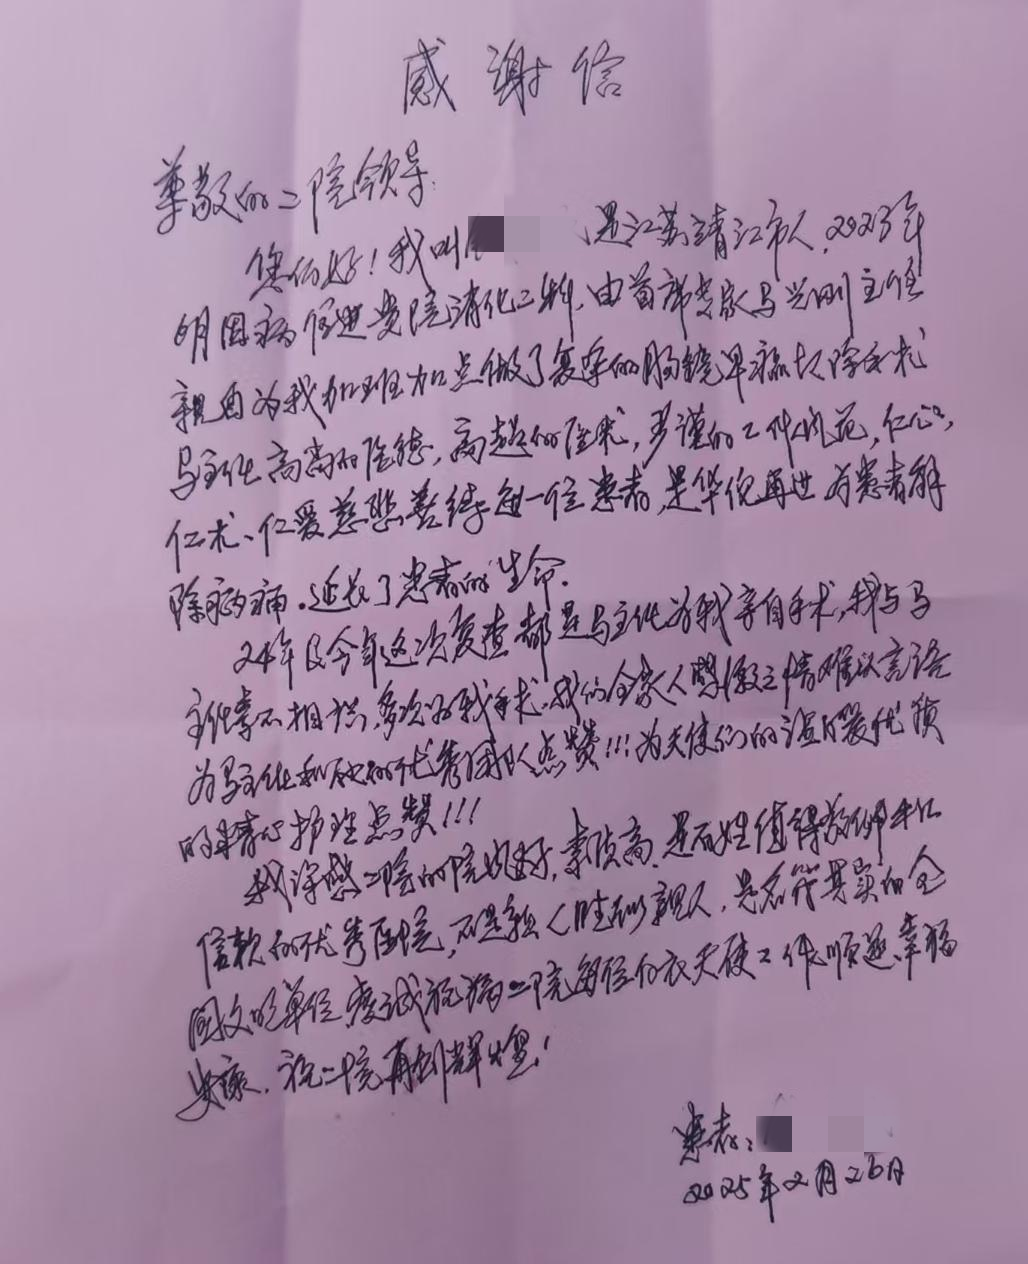 感谢信
尊敬的二院领导:
您们好!我叫 是江苏靖江市人,2023年
明因病住进贵院消化二科,由首席专家马兴刚主任
亲自为我加班加点做了复杂的肠镜早癌切除手术
马主任高尚的医德,高超的医术,严谨的工作风范,仁心,
仁术、仁爱慈悲善待每一位患者,是华佗再世为患者解
除病痛.延长了患者的生命.
24年及今年这次复查都是马主任为我亲自手术,我与马
主任素不相识,多次为我手术,我们全家人感激之情难以言语
为马主任和他的优秀团队点赞!!!为天使们的温馨优质
的精心护理点赞!!!
我深感二院的院风好,素质高,是百姓值得敬仰和
信赖的优秀医院,不是亲人胜似亲人,是名符其实的全
国文明单位,虔诚祝福二院每位白衣天使工作顺遂、幸福
安康.祝二院再创辉煌!
患者:
2025年2月26日